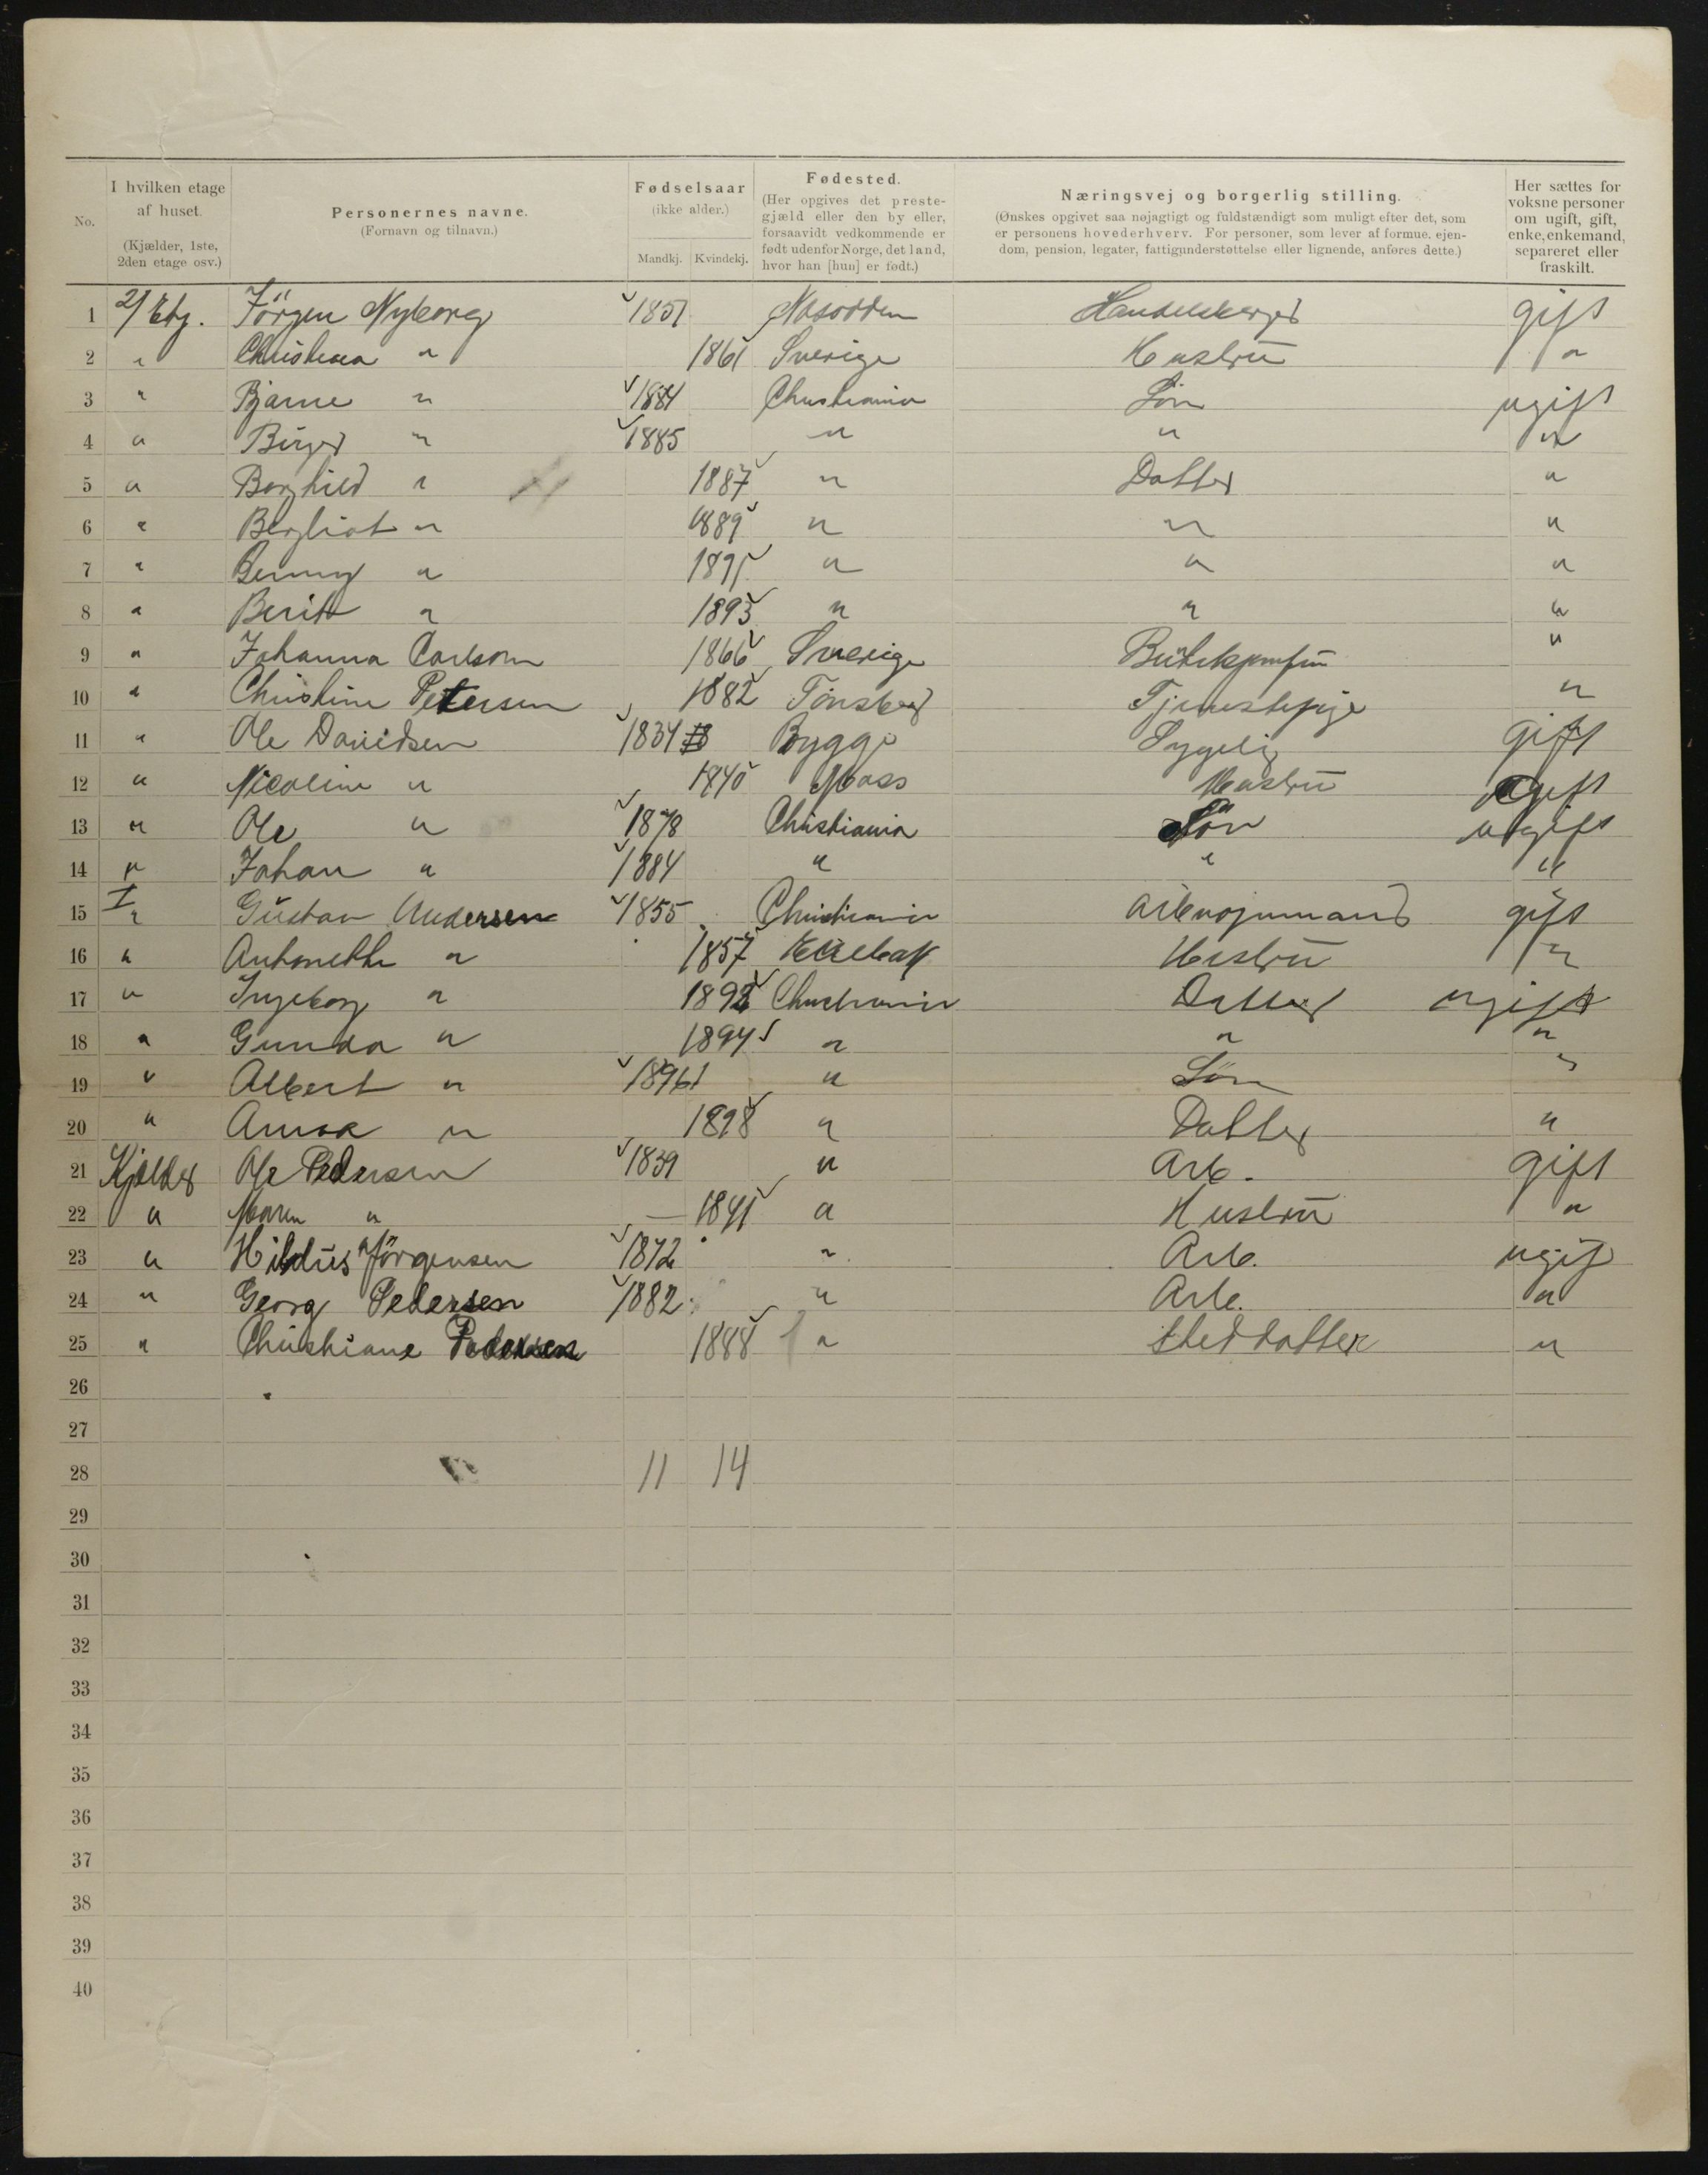 No.
I hvilken etage af huset.
(Kjælder, 1ste, 2den etage osv.)
Personernes navne.
(Fornavn og tilnavn.)
Fødselsaar
(ikke alder.)
Mandkj. Kvindekj.
Fødested.
(Her opgives det preste-
gjæld eller den by eller,
forsaavidt vedkommende er
født udenfor Norge, det land,
hvor han [hun] er født.)
Næringsvej og borgerlig stilling.
(Ønskes opgivet saa nøjagtigt og fuldstændigt som muligt efter det, som
er personens hovederhverv. For personer, som lever af formue, ejen-
dom, pension, legater, fattigunderstøttelse eller lignende, anføres dette.)
Her sættes for
voksne personer
om ugift, gift,
enke, enkemand,
separeret eller
fraskilt.
1 2/Etg. Jörgen Nyborg 1851 Nesodden gift
2 " Christina " 1861 Sverige Hustrū "
3 " Bjarne " 1884 Christiania Sön ugift
4 " Birger " 1885 " " "
5 " Borghild " 1887 " Datter "
6 " Bergliot " 1889 " " "
7 " Benny " 1891 " " "
8 " Berit " 1893 " " "
9 " Johanna Carlson 1866 Sverige "
10 " Christine Petersen 1882 Tönsberg Tjenestepige "
11 " Ole Davidsen 1834 Bygge Sygelig gift
12 " Nicoline " 1840 Moss Hustrū gift
13 " Ole " 1878 Christiania Sön ugift
14 " Johan " 1884 " " "
15 I " Gūstav Andersen 1855 Christiania gift
16 " Antonethe " 1857 Hustrū "
17 " Ingeborg " 1892 Christiania Datter ugift
18 " Gunda " 1894 " " "
19 " Albert " 1896 " Sön "
20 " Anna " 1898 " Datter "
21 Kjælder Ole Pedersen 1839 " Arb. gift
22 " Maren " 1841 " Hustrū "
23 " Hildūs Jörgensen 1872 " Arb. ugift
24 " Georg Pedersen 1882 " Arb. "
25 " Christiane Pedersen 1888 " Steddatter "
26
27
28 11 14
29
30
31
32
33
34
35
36
37
38
39
40